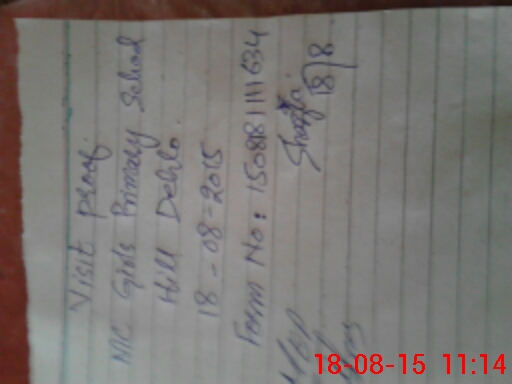 Visit proof.
MC Girls Primary School
Hill Dehlo.
18-08-2015
Form No: 150881111634
18/8
18-08-15 11:14